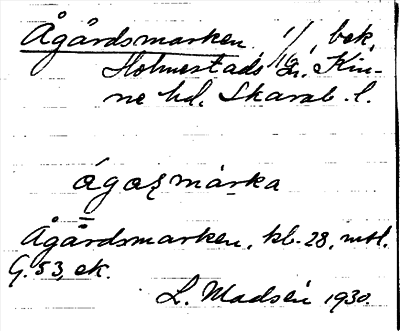 Ågårdsmarken, 1/16, bek,
Holmestads sn. Kin-
ne hd. Skarab. l.
ágaʐmàrka
Ågårdsmarken, kb. 28, mtl.
G. 53, ek.
L. Madsén 1930.